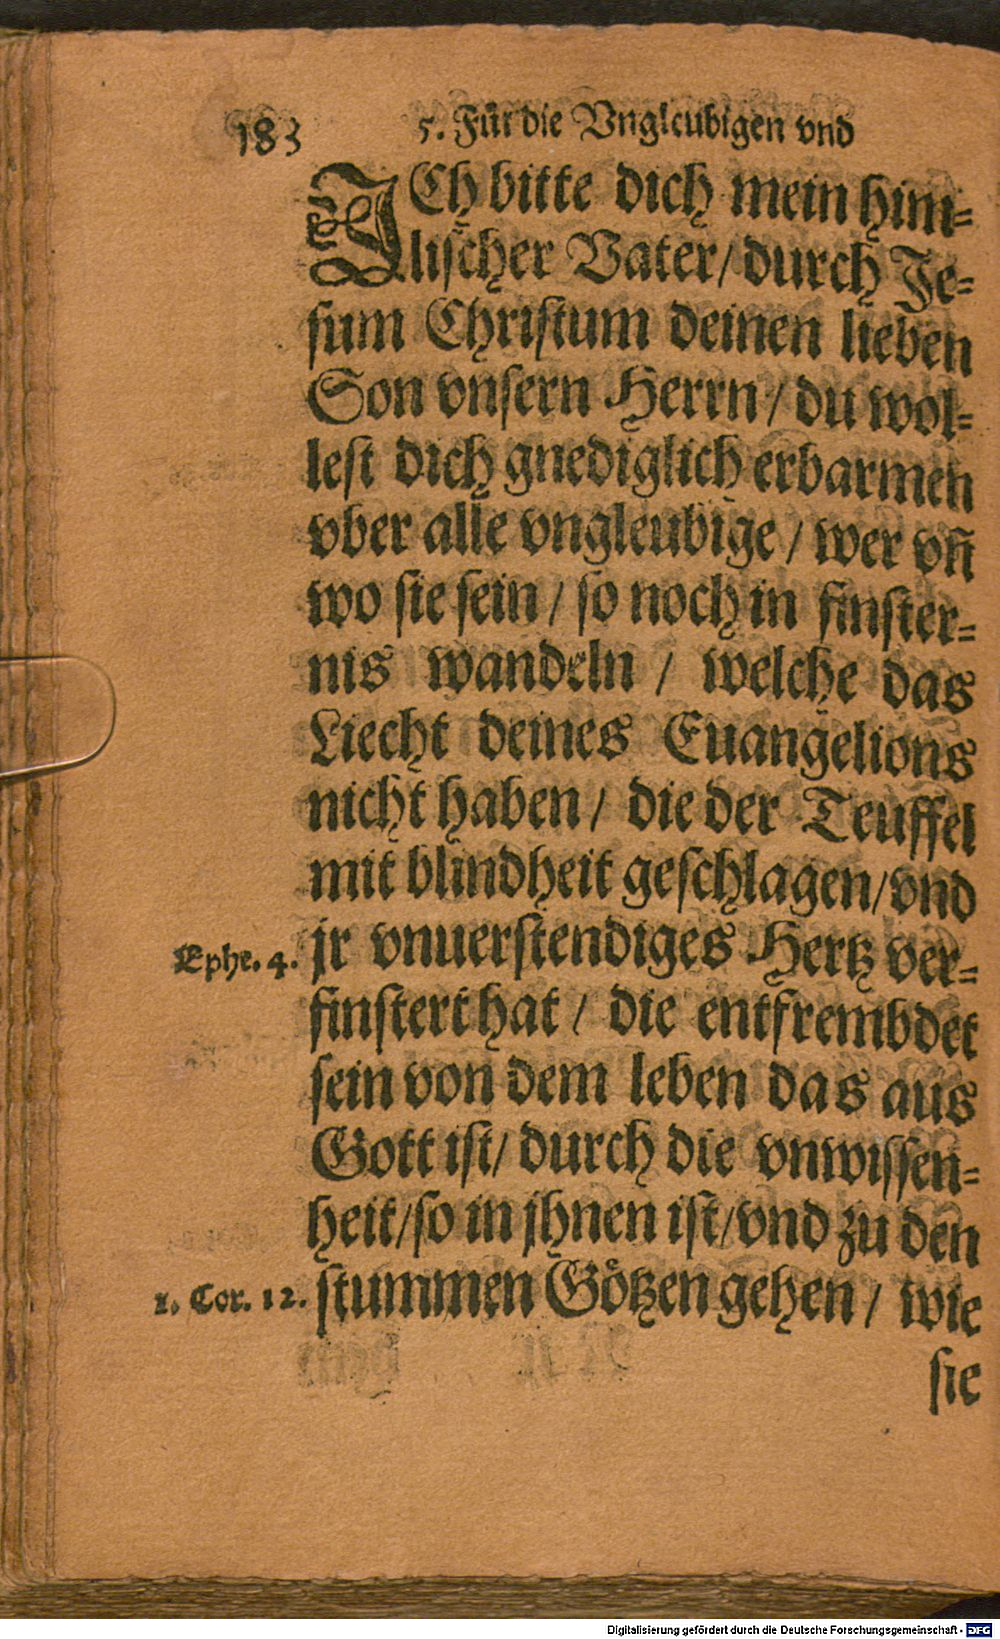 183 5. Für die Vngleubigen vnd
ICh bitte dich mein him-
lischer Vater/ durch Je-
sum Christum deinen lieben
Son vnsern Herrn/ du wol-
lest dich gnediglich erbarmen
vber alle vngleubige/ wer vñ
wo sie sein/ so noch in finster-
nis wandeln/ welche das
Liecht deines Euangelions
nicht haben/ die der Teuffel
mit blindheit geschlagen/ vnd
Ephe. 4. jr vnuerstendiges Hertz ver-
finstert hat/ die entfrembdet
sein von dem leben das aus
Gott ist/ durch die vnwissen-
heit/ so in jhnen ist/ vnd zu den
1. Cor. 12. stummen Götzen gehen/ wie
sie
Digitalisierung gefördert durch die Deutsche Forschungsgemeinschaft - DFG